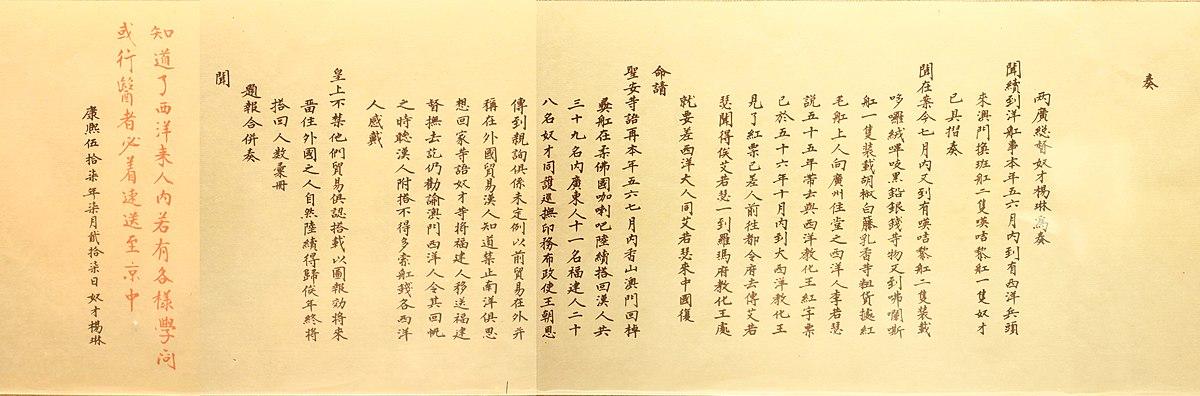 奏
兩廣總督奴才楊琳爲奏
聞續到洋舡事本年五六月內到有西洋兵頭
來澳門換班舡二隻嘆咭黎舡一隻奴才
已具摺奏
聞在案今七月內又到有嘆咭黎舡二隻裝載
哆囉絨嗶吱黑鉛銀錢等物又到咈囒斯
舡一隻裝載胡椒白藤乳香等粗貨據紅
毛舡上人向廣州住堂之西洋人李若瑟
說五十五年帶去與西洋教化王紅字票
已於五十六年十月內到大西洋教化王
見了紅票已差人前往都令府去傳艾若
瑟聞得俟艾若瑟一到羅瑪府教化王處
就要差西洋大人同艾若瑟來中國復
命請
聖安等語再本年五六七月內香山澳門回棹
彝舡在柔佛國咖喇吧陸續搭回漢人共
三十九名內廣東人十一名福建人二十
八名奴才同護巡撫印務布政使王朝恩
傳到親詢俱係未定例以前貿易在外并
稱在外國貿易漢人知道禁止南洋俱思
想回家等語奴才等將福建人移送福建
督撫去訖仍勸諭澳門西洋人令其回帆
之時聽漢人附搭不得多索舡錢各西洋
人感戴
皇上不禁他們貿易俱認搭載以圖報効將來
畱住外國之人自然陸續得歸俟年終將
搭回人數彙冊
題報合併奏
聞
知道了西洋來人內若有各樣學問
或行醫者必着速送至京中
康熙伍拾柒年柒月貳拾柒日奴才楊琳